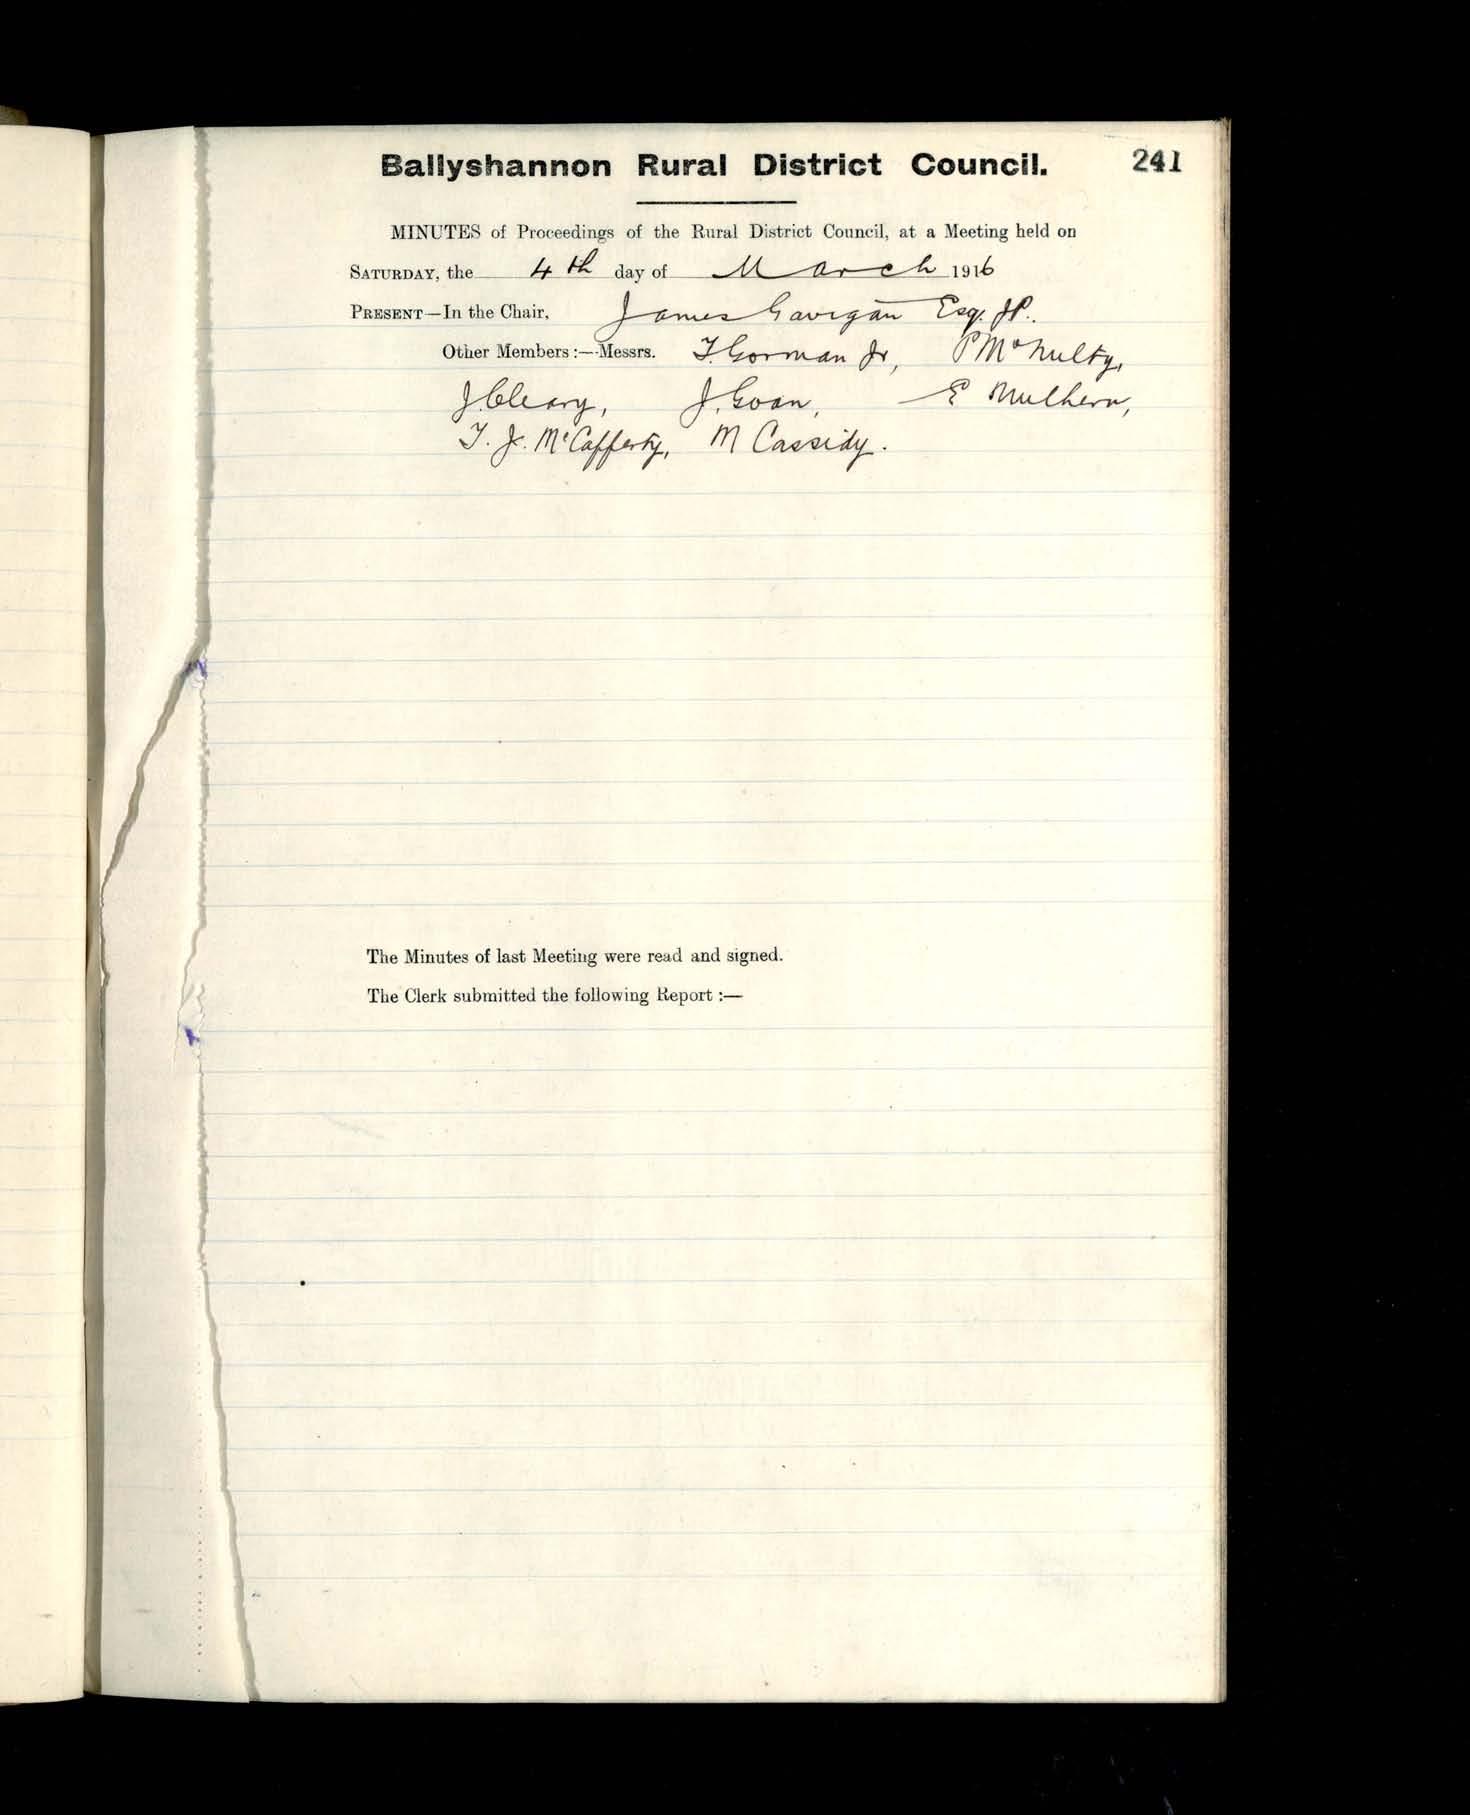 Ballyshannon Rural District Council. 241
MINUTES of Proceedings of the Rural District Council, at a Meeting held on
SATURDAY, the 4th day of March 1916
PRESENT—In the Chair, James Gavigan Esq. JP.
Other Members :—Messrs. T. Gorman Jr, P McNulty,
J. Cleary, J. Goan, E Mulhern,
T. J. McCafferty, M Cassidy.
The Minutes of last Meeting were read and signed.
The Clerk submitted the following Report :—